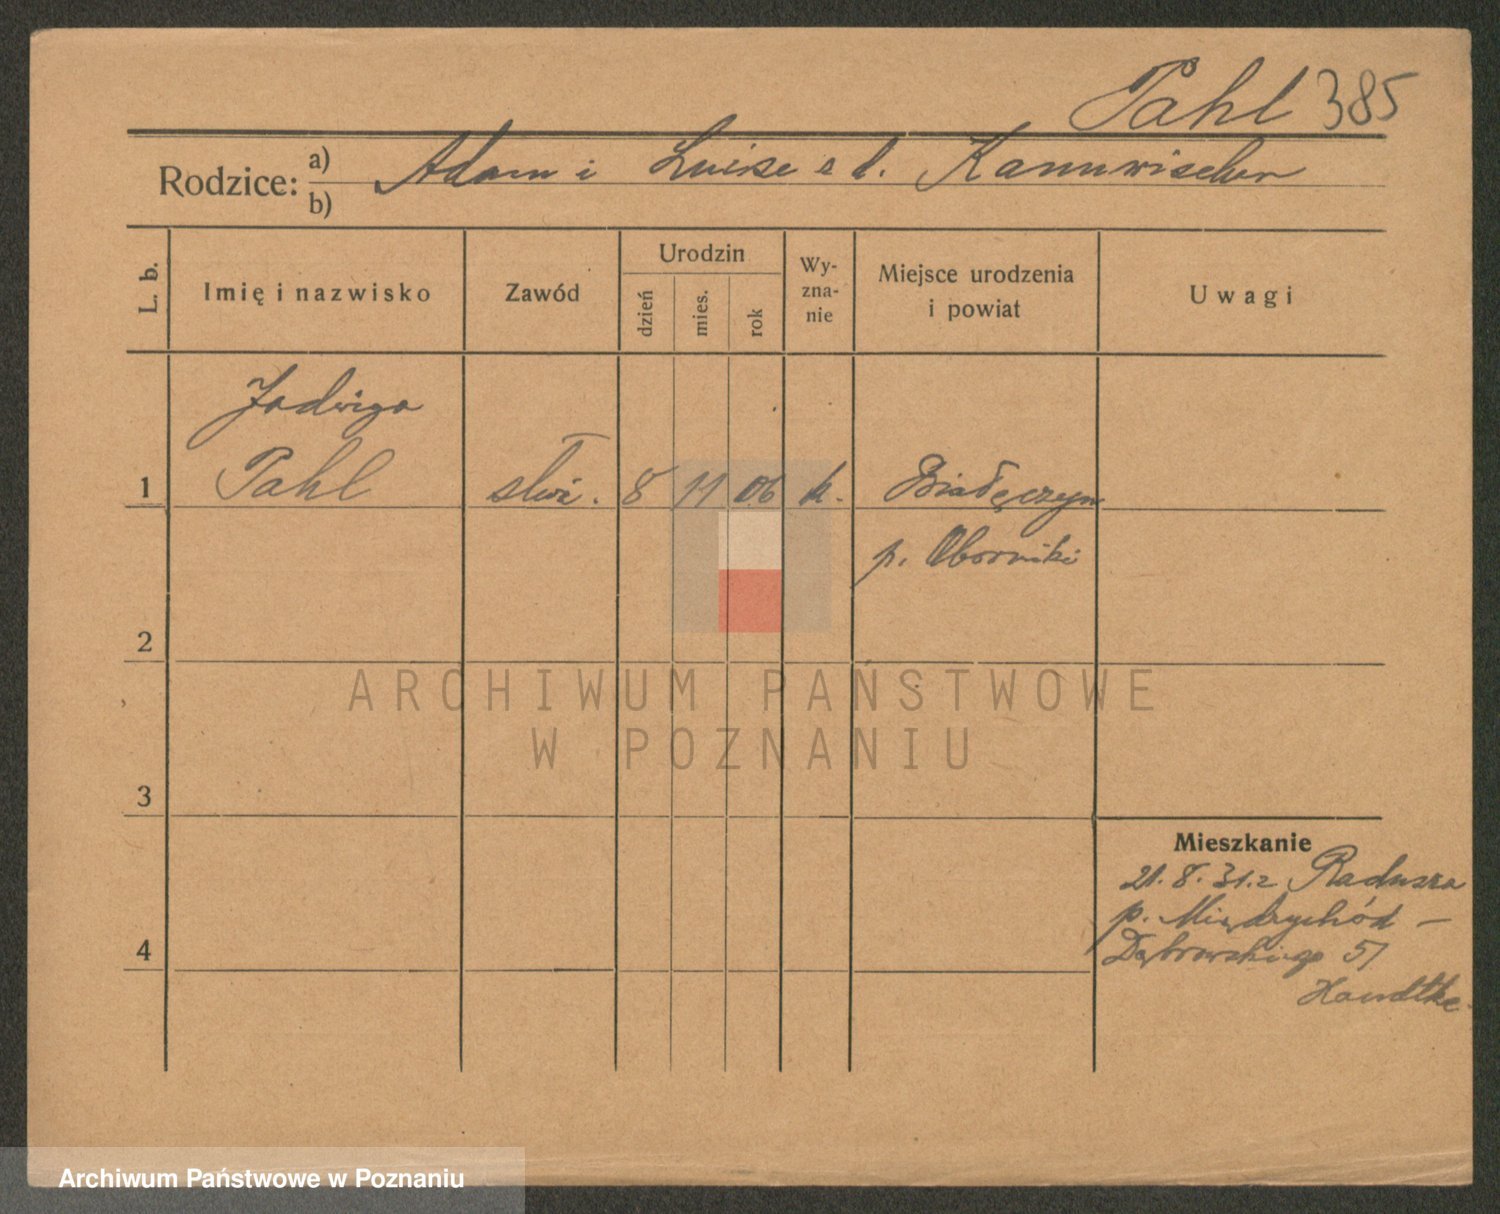 Pahl 385
Rodzice: a) b) Adam i Luise z d. Kannwischer
L. b.
Imię i nazwisko
Zawód
Urodzin
dzień
mies.
rok
Wy-
zna-
nie
Miejsce urodzenia
i powiat
Uwagi
Jadwiga
1 Pahl służ. 8 11 06 k. Białężyn
p. Oborniki
2
3
4
Mieszkanie
21. 8. 31. z Radusza
p. Międzychód –
Dąbrowskiego 51
Handtke
ARCHIWUM PAŃSTWOWE
W POZNANIU
Archiwum Państwowe w Poznaniu